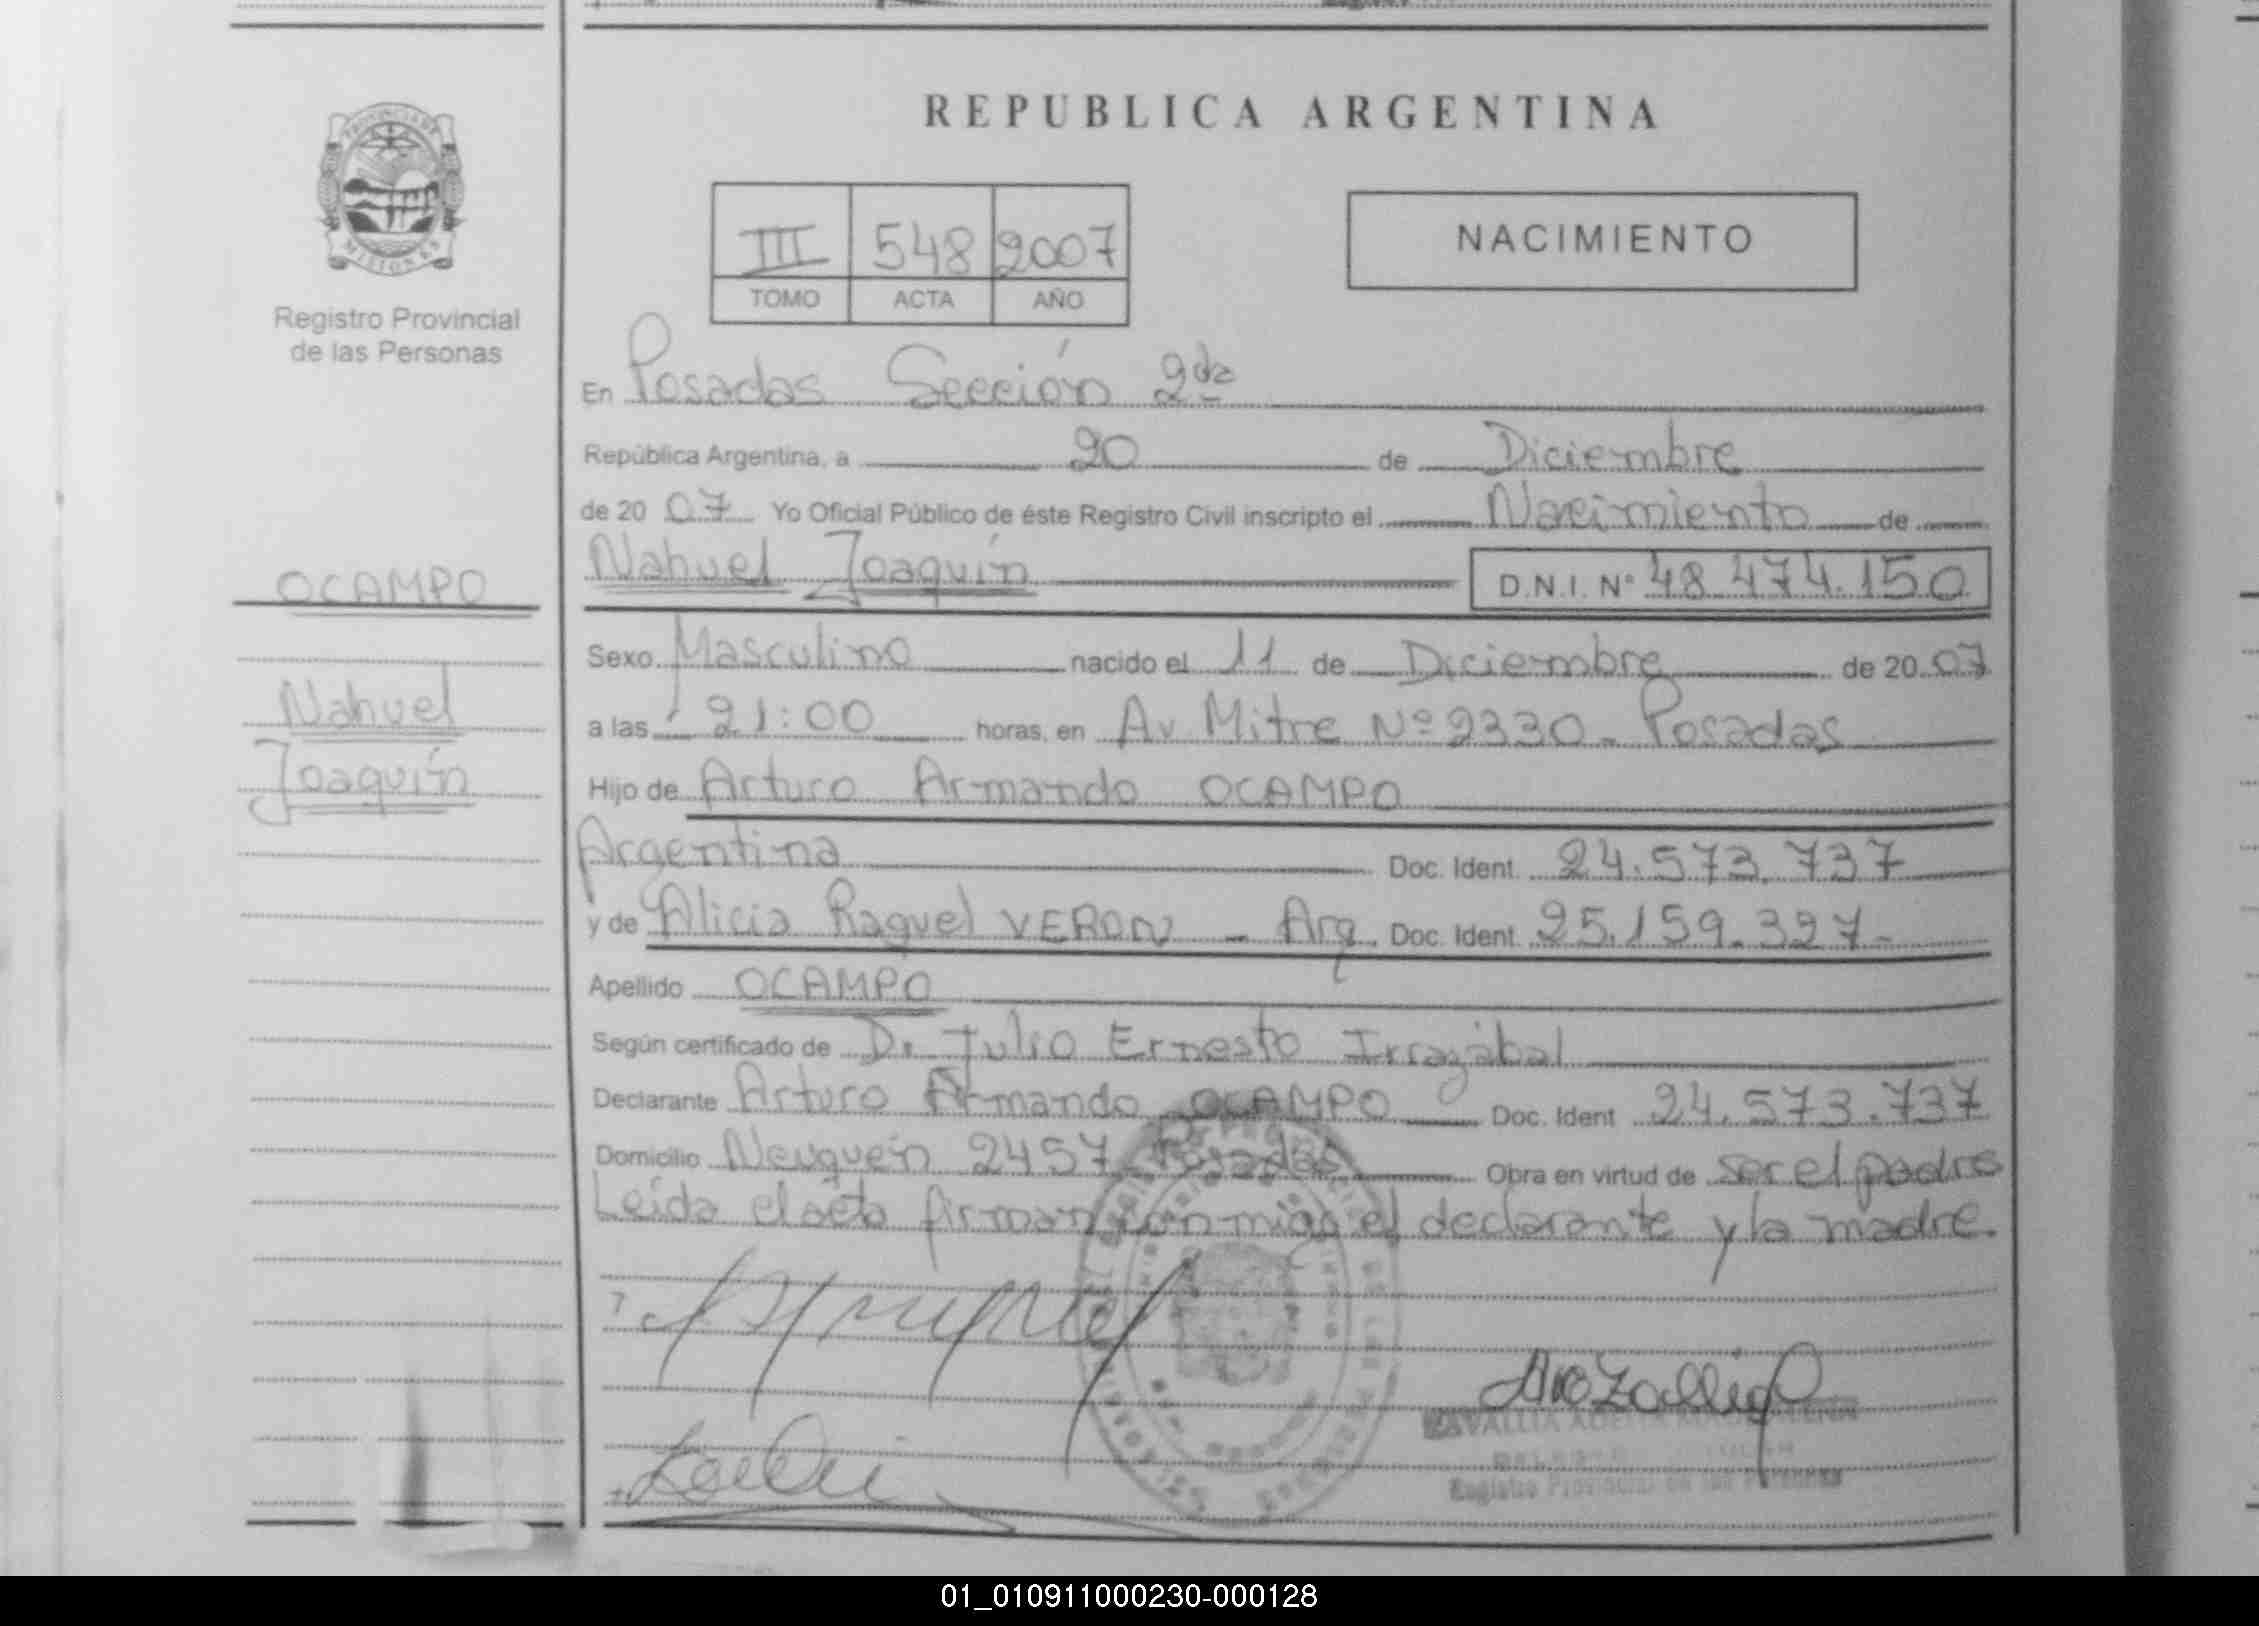 REPUBLICA ARGENTINA
MISIONES
Registro Provincial
de las Personas
III 548 2007
TOMO ACTA AÑO
NACIMIENTO
En Posadas Sección 2da
República Argentina, a 20 de Diciembre
de 20 07 Yo Oficial Público de éste Registro Civil inscripto el Nacimiento de
Nahuel Joaquín D.N.I. Nº 48.474.150
OCAMPO
Nahuel
Joaquín
Sexo Masculino nacido el 11 de Diciembre de 20 07
a las 21:00 horas, en Av. Mitre Nº 2330 - Posadas
Hijo de Arturo Armando OCAMPO
Argentina Doc. Ident. 24.573.737
y de Alicia Raquel VERON - Arg. Doc. Ident. 25.159.327-
Apellido OCAMPO
Según certificado de D. Julio Ernesto Irrazábal
Declarante Arturo Armando OCAMPO Doc. Ident 24.573.737
Domicilio Neuquén 2457 - Posadas Obra en virtud de ser el padre
Leida el acta firman con migo el declarante y la madre.
Registro Provincial de las Personas
01_010911000230-000128